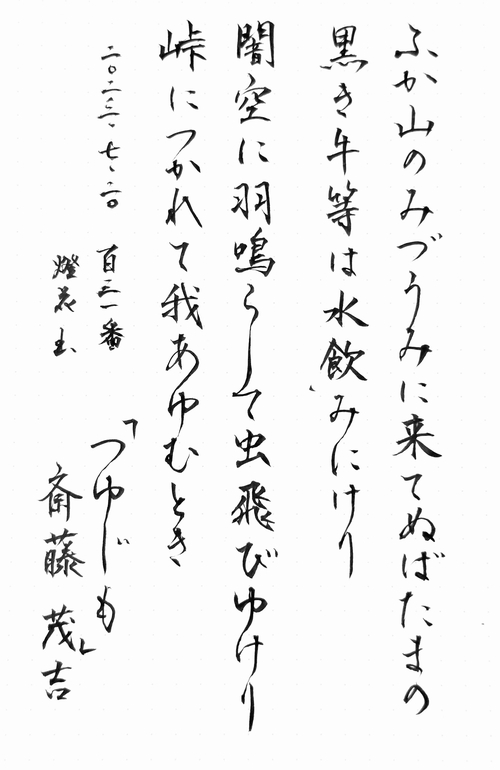 ふか山のみづうみに来てぬばたまの
黒き牛等は水飲みにけり
闇空に羽鳴らして虫飛びゆけり
峠につかれて我あゆむとき
二〇二三・七・二〇 百三一番
燈花
「つゆじも」
斎藤茂吉